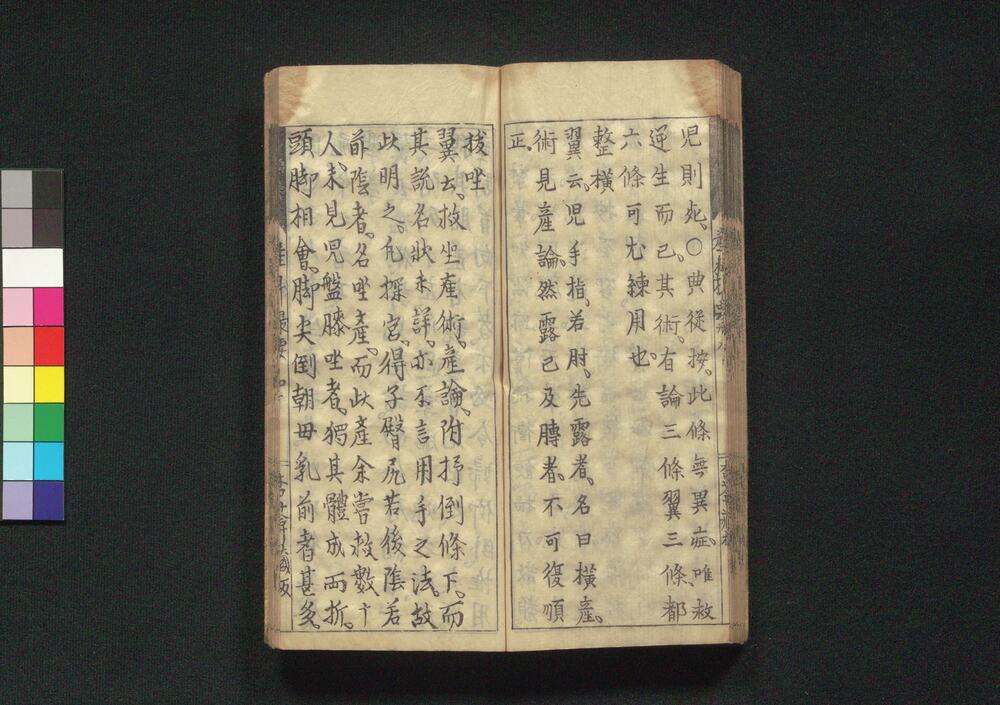 児則死。〇典從按。此條無異症。唯救
逆生而已。其術有論三條翼三條、都
六條可尤練用也。
整横
翼云。児手指、若肘。先露者、名曰横產。
術見產論。然露已及膊者。不可復順
正。
拔唑
翼云。救坐產術。產論、附抒倒條下。而
其說名狀未詳。亦不言用手之法。故
此明之。凡探宮。得子臀尻若後陰若
前陰者。名唑產。而此產余嘗救數十
人。未見児盤膝唑者。獨其體成両折。
頭脚相會。脚尖倒朝母乳前者甚多。